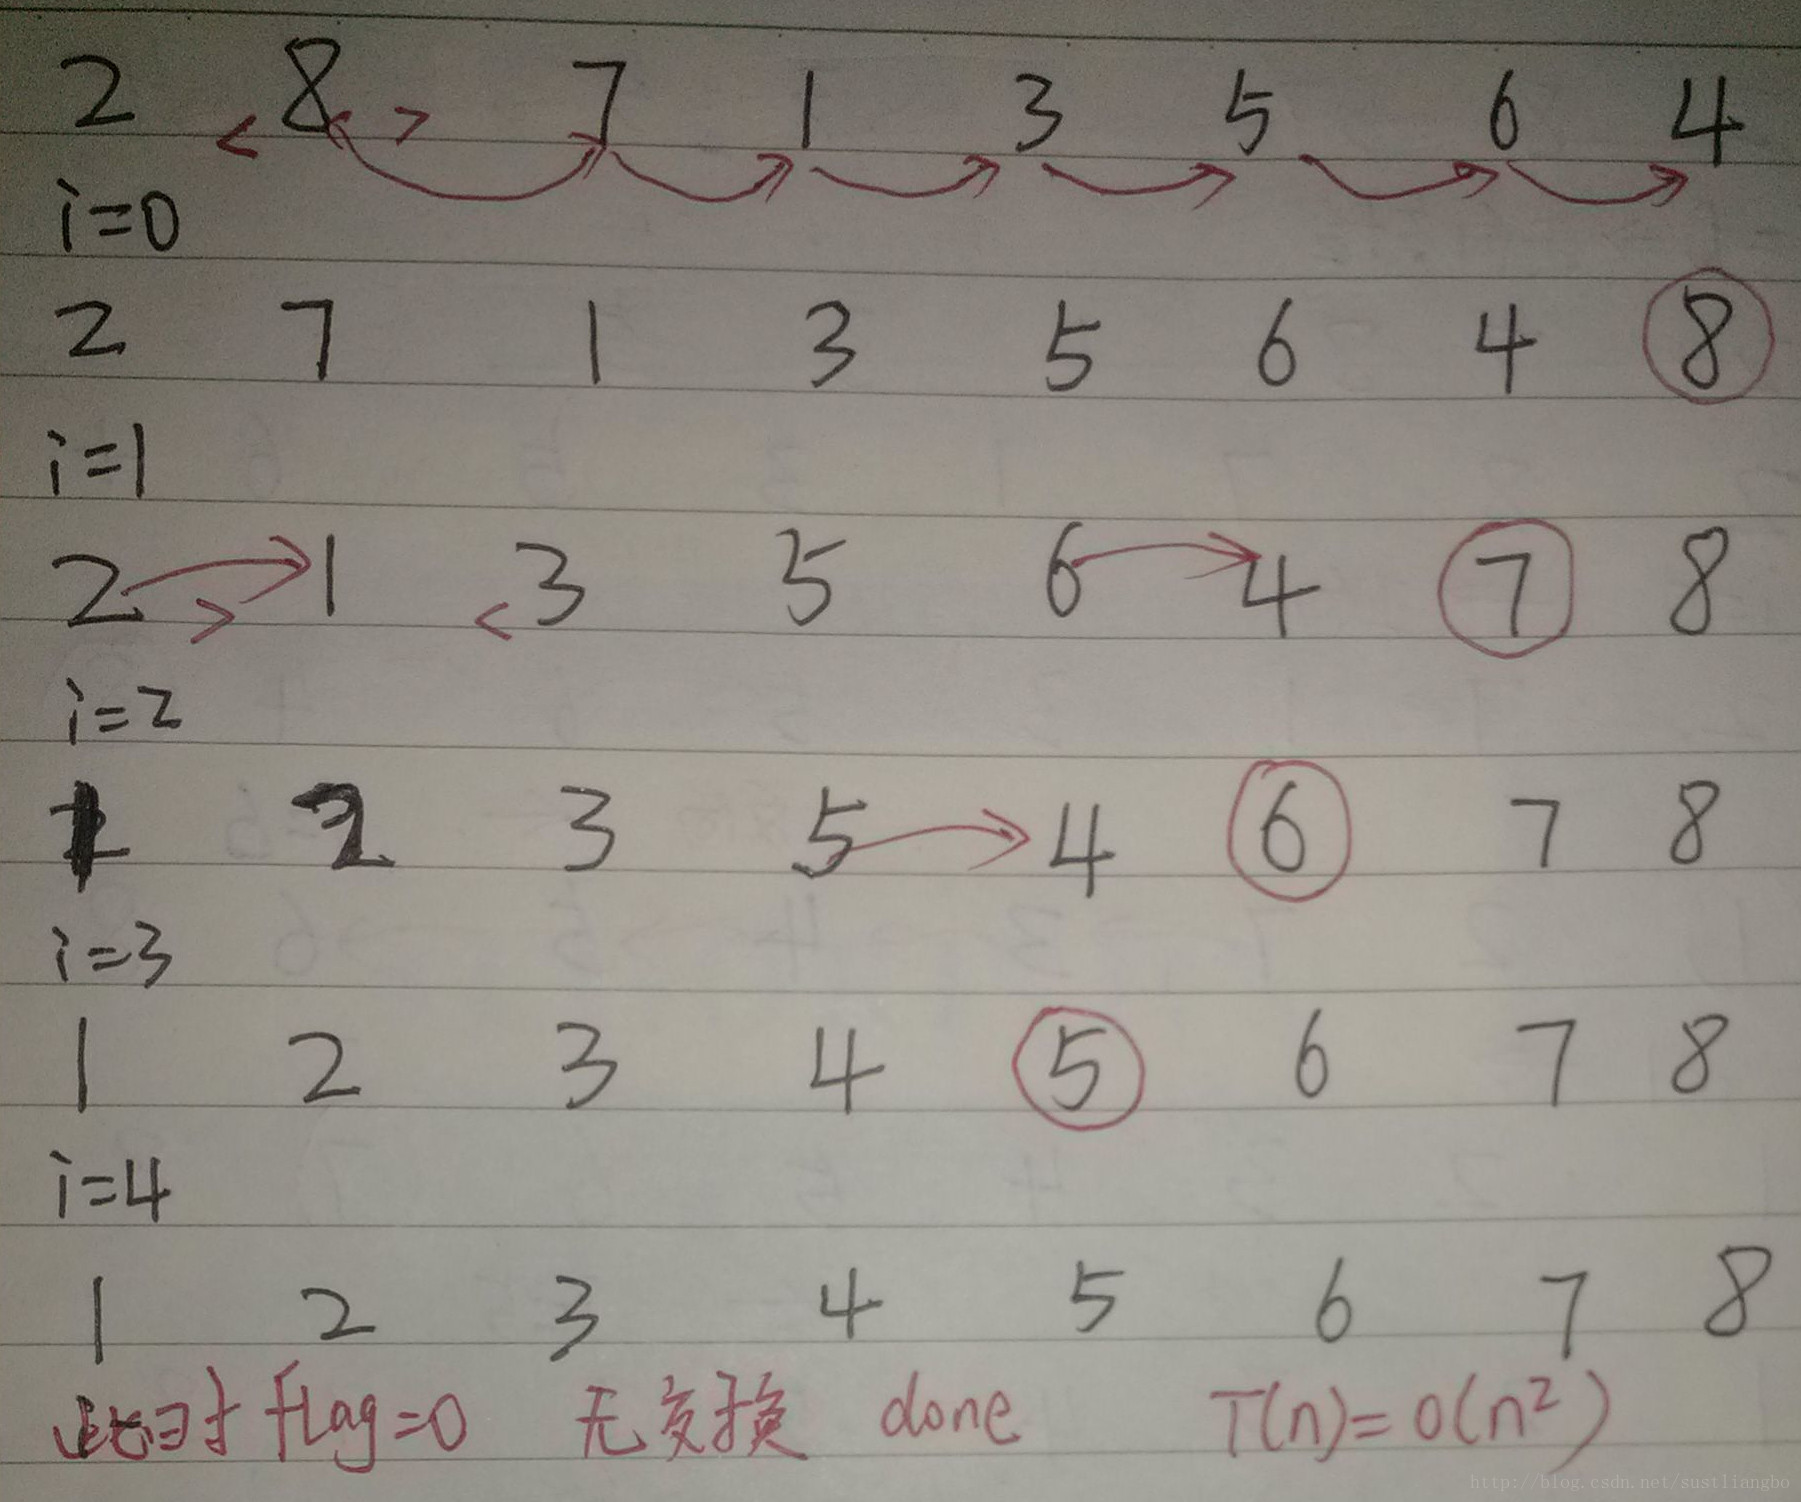 2 8 7 1 3 5 6 4
i=0
2 7 1 3 5 6 4 8
i=1
2 1 3 5 6 4 7 8
i=2
1 2 3 5 4 6 7 8
i=3
1 2 3 4 5 6 7 8
i=4
1 2 3 4 5 6 7 8
此时flag=0 无交换 done T(n)=O(n²)
http://blog.csdn.net/sustliangbo